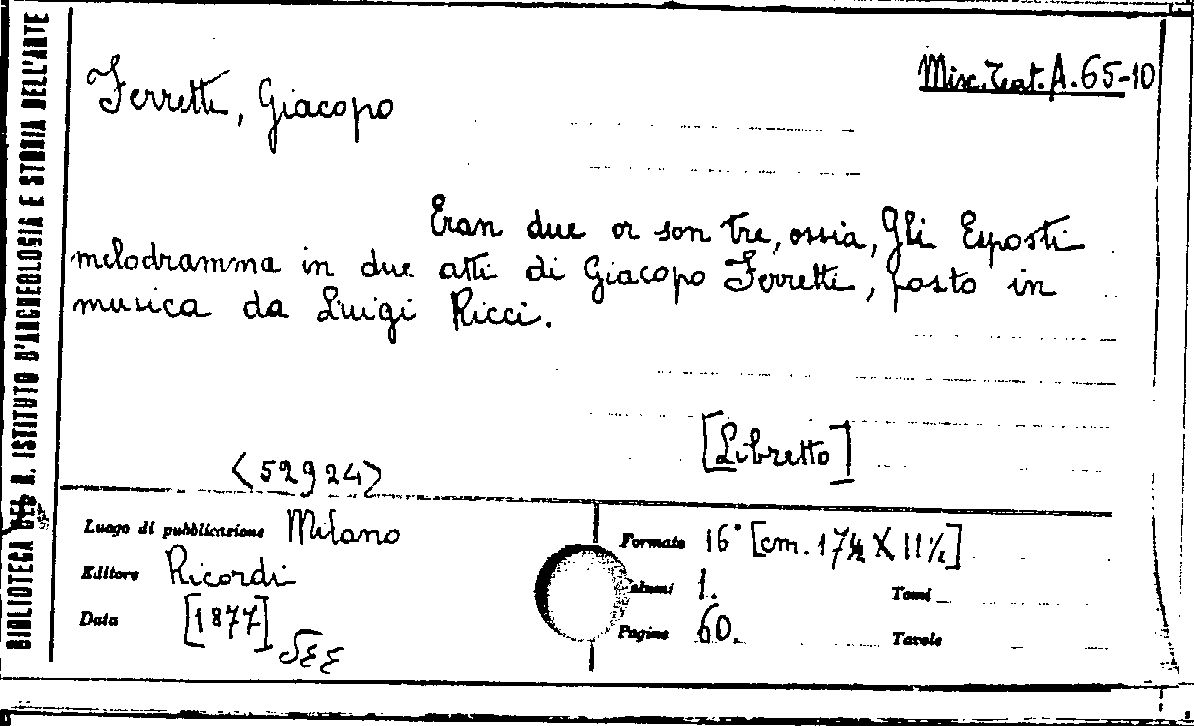 BIBLIOTECA DEL R. ISTITUTO D'ARCHEOLOGIA E STORIA DELL'ARTE
Misc. Teat. A. 65-10
Ferretti, Giacopo
Eran due or son tre, ossia, Gli Esposti
melodramma in due atti di Giacopo Ferretti, posto in
musica da Luigi Ricci.
[Libretto]
<52924>
Luogo di pubblicazione Milano
Editore Ricordi
Data [1877]
Formato 16° [cm. 17½ X 11½]
Volumi 1. Tomi
Pagine 60. Tavole